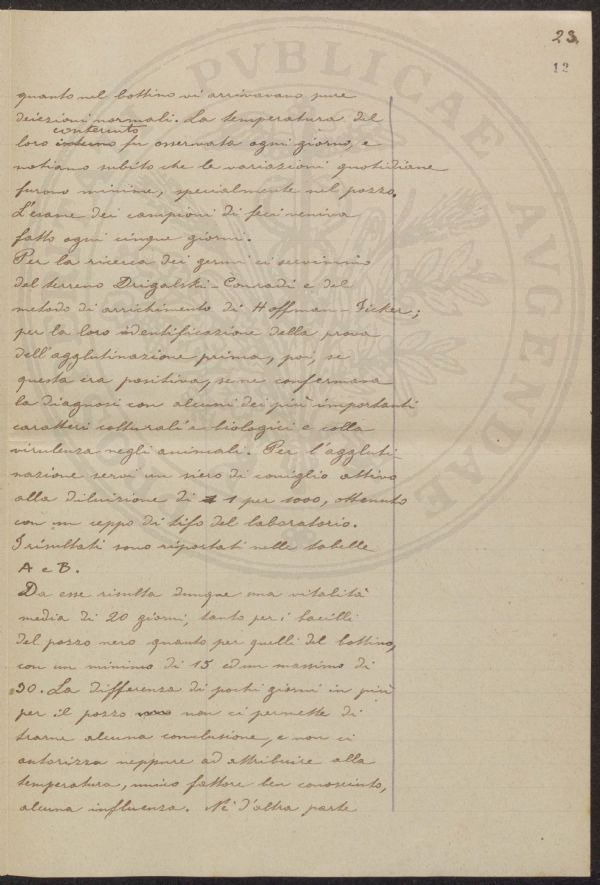 23.
12
PVBLICAE AVGENDAE
quanto nel bottino vi arrivavano pure
deiezioni normali. La temperatura del
contenuto
loro interno fu osservata ogni giorno, e
notiamo subito che le variazioni quotidiane
furono minime, specialmente nel pozzo.
L'esame dei campioni di feci veniva
fatto ogni cinque giorni.
Per la ricerca dei germi ci servimmo
del terreno Drigalski-Conradi e del
metodo di arrichimento di Hoffman-Ficker;
per la loro identificazione della prova
dell'agglutinazione prima, poi, se
questa era positiva, se ne confermava
la diagnosi con alcuni dei più importanti
caratteri colturali e biologici e colla
virulenza negli animali. Per l'aggluti-
nazione servì un siero di coniglio attivo
alla diluizione di 1 per 1000, ottenuto
con un ceppo di tifo del laboratorio.
I risultati sono riportati nelle tabelle
A e B.
Da esse risulta dunque una vitalità
media di 20 giorni, tanto per i bacilli
del pozzo nero quanto per quelli del bottino,
con un minimo di 15 ed un massimo di
30. La differenza di pochi giorni in più
per il pozzo non ci permette di
trarne alcuna conclusione, e non ci
autorizza neppure ad attribuire alla
temperatura, unico fattore ben conosciuto,
alcuna influenza. Nè d'altra parte